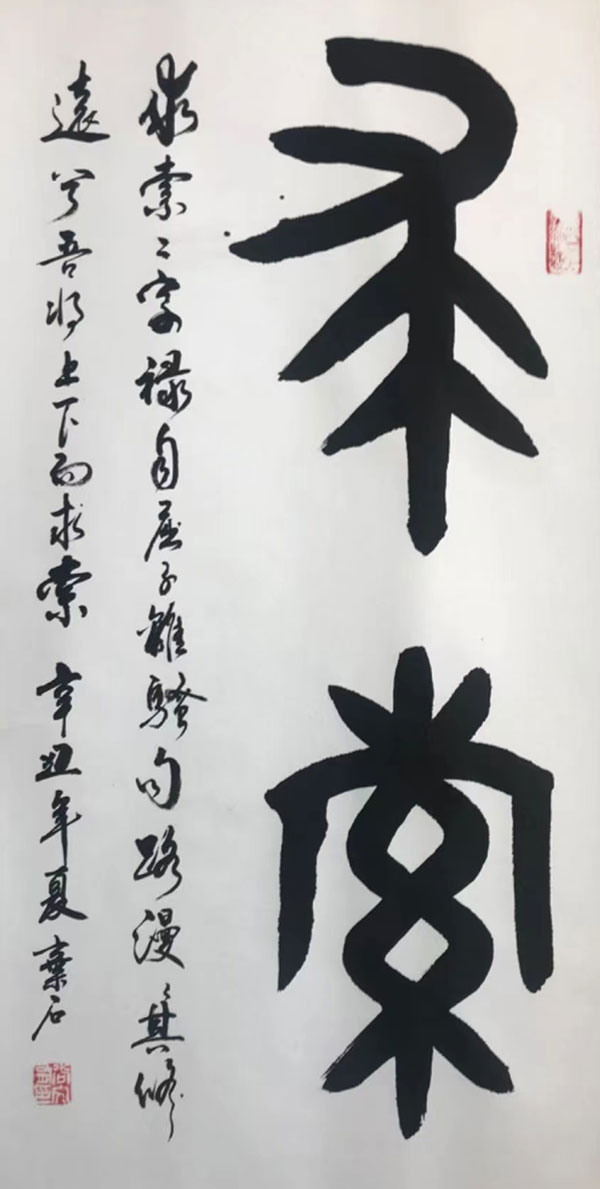 求索
求索二字禄自屈子離騷句路漫〻其修
遠兮吾将上下而求索 辛丑年夏 棄石